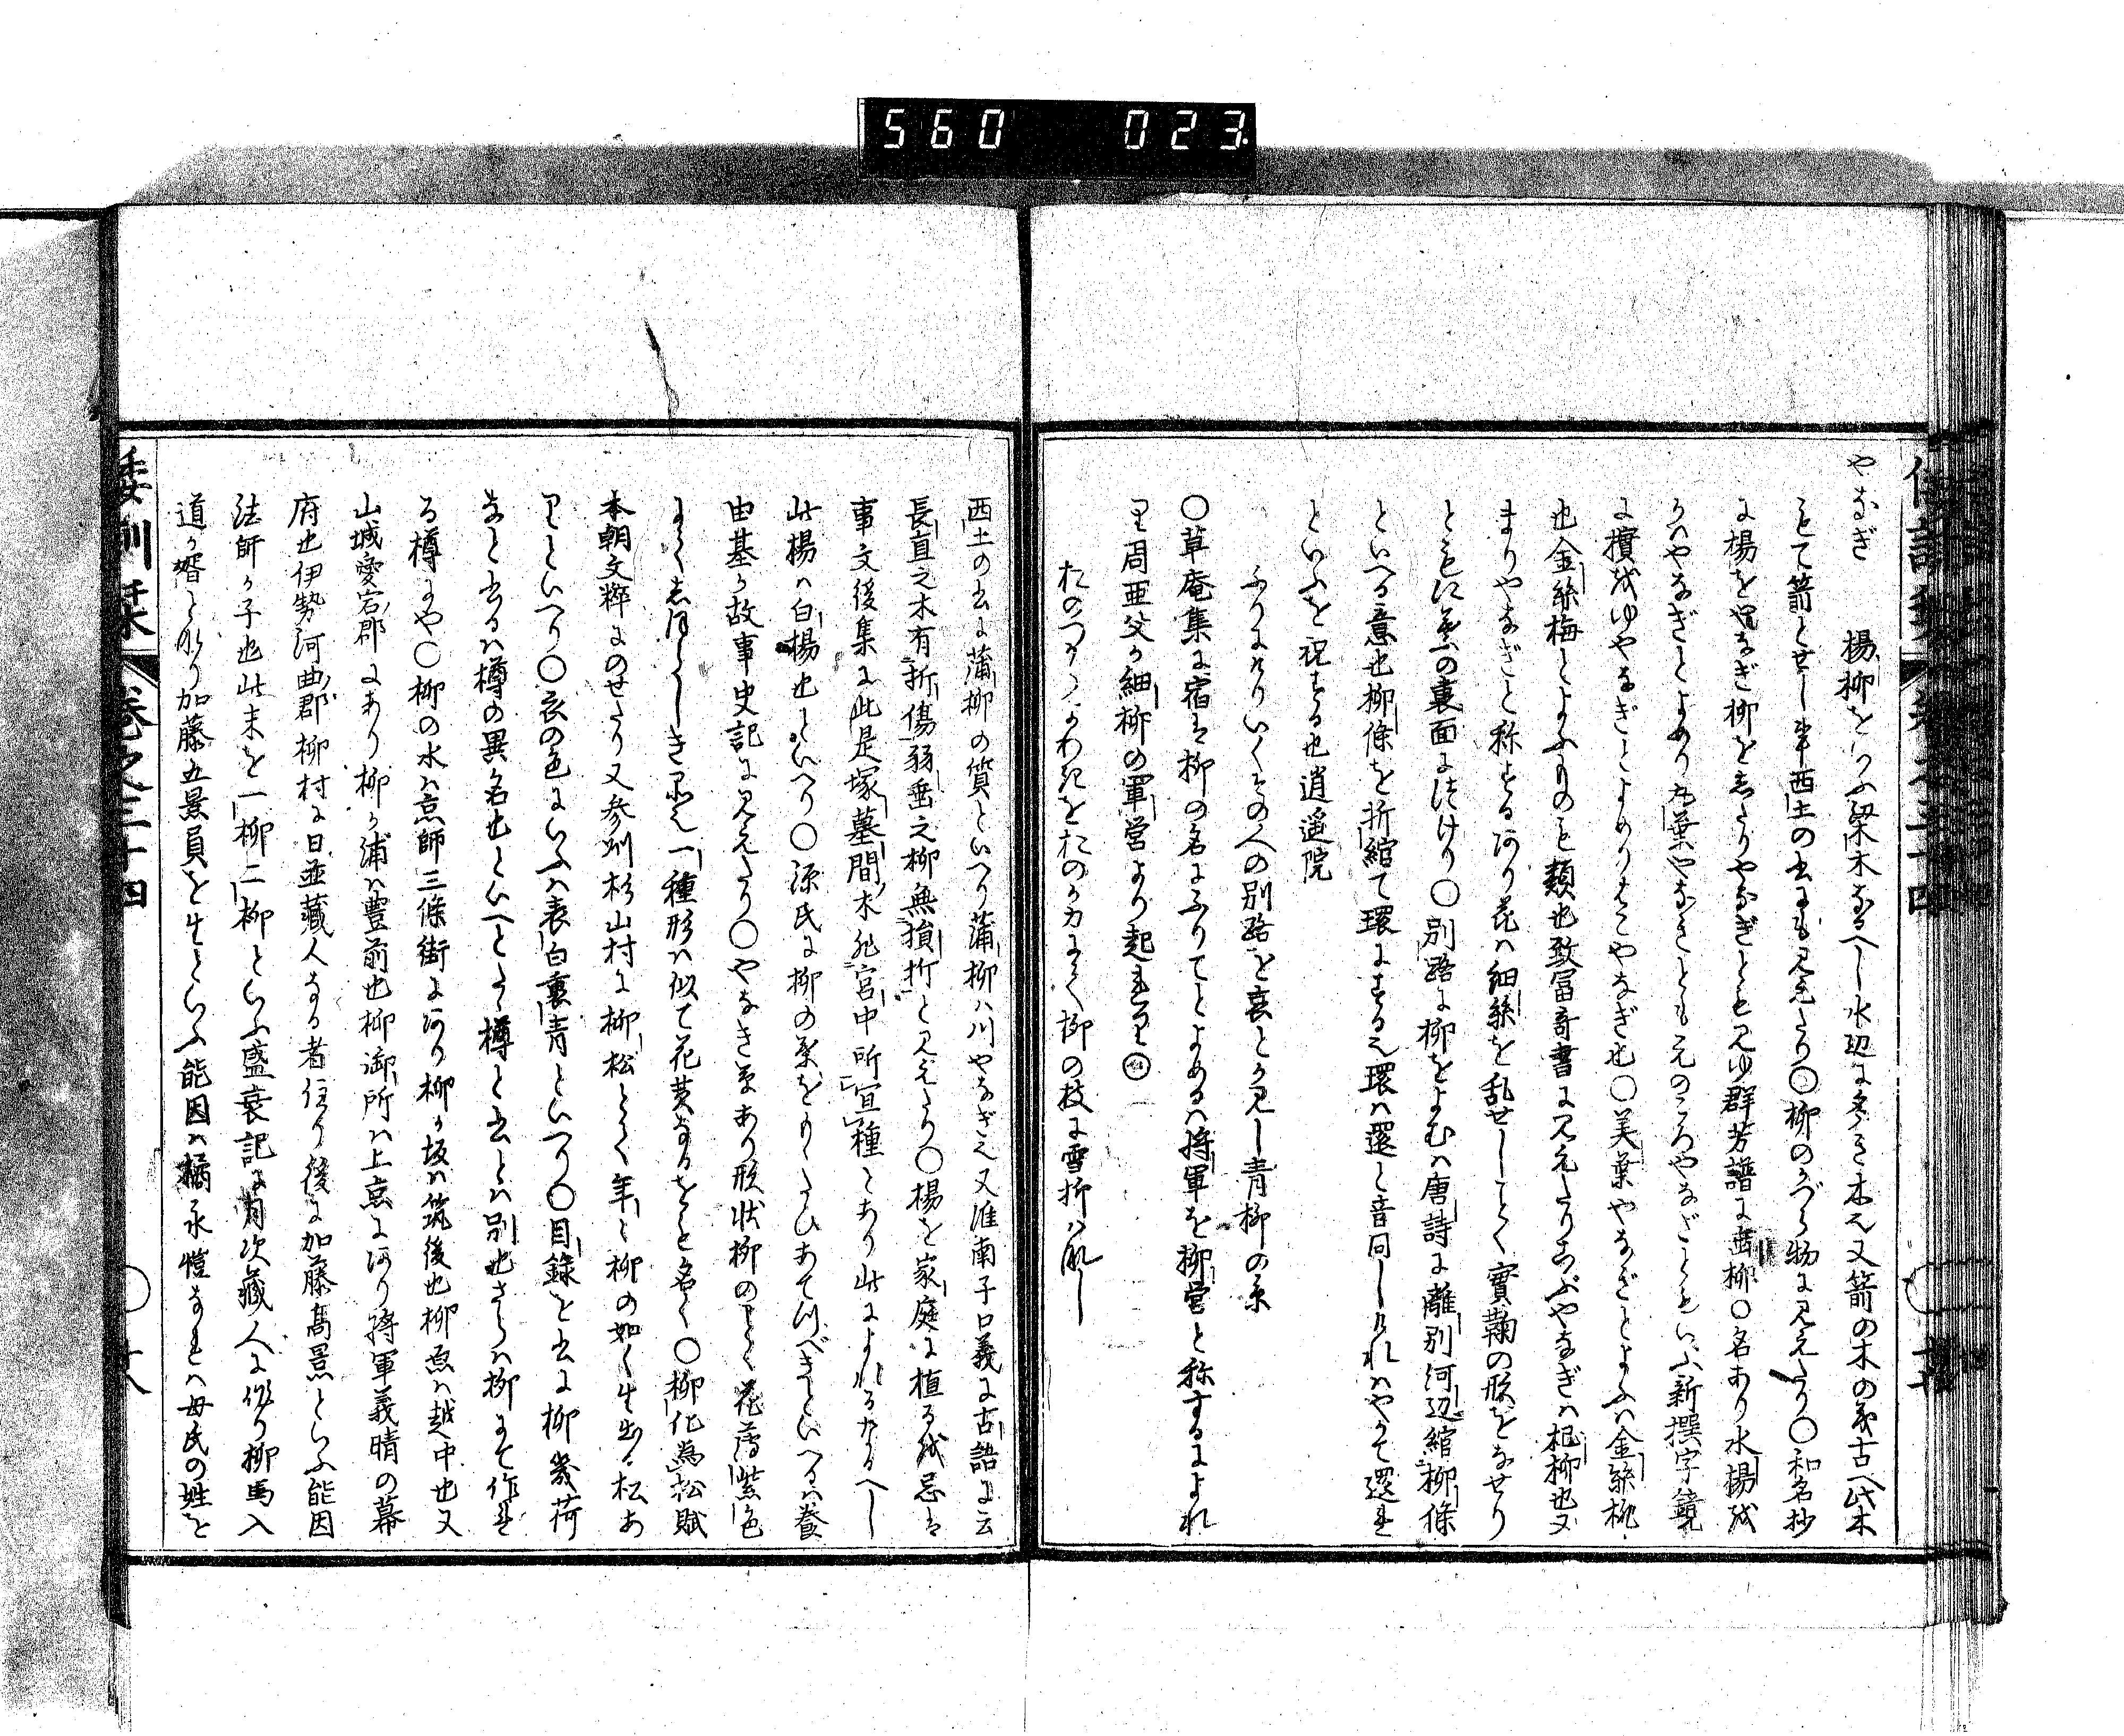 560 023
やなぎ 楊柳をいふ梁木なるへし水辺に多き木也又箭の木の義古へ此木
もて箭とせし事西土の書にも見えたり〇柳のかづら物に見えたり〇和名抄
に楊をやなぎ柳をしたりやなぎとも見ゆ群芳譜に茜柳〇名あり水楊を
かはやなぎとよめり丸葉やなぎともえのころやなぎともいふ新撰字鏡
に檉をゆやなぎとよめりはこやなぎ也〇美葉やなぎとよふハ金絲桃
也金絲梅とよふものも類也致富奇書に見えたりこぶやなぎハ杞柳也又
まりやなぎと称するあり花ハ細絲を乱せしことく實鞠の形をなせり
〇別路に柳をよむハ唐詩に離別河辺綰柳條
といへる意也柳條を折綰て環にする也環ハ還と音同しけれハやかて還れ
といふを祝する也逍遥院
ふりにけりいくその人の別路を哀とか見し青柳の糸
〇草庵集に宿は柳の名にふりてとよめるハ将軍を柳営と称するによれ
り周亜父か細柳の軍営より起れり
おのつからよわきをおのか力にて柳の枝に雪折ハなし
西土の書に蒲柳の質といへり蒲柳ハ川やなぎ也又淮南子口義に古語に云
長直之木有折傷弱垂之柳無損折と見えたり〇楊を家庭に植るを忌は
事文後集に此是塚墓間木非宮中所宣種とあり此によれるなるへし
此楊ハ白楊也といへり〇源氏に柳の葉をもゝたひあてつべきといへるハ養
由基か故事史記に見えたり〇やなき草あり形状柳のことく花薄紫色
一種形ハ似て花黄なるをも名く〇柳化為松賦
本朝文粋にのせたり又参州杉山村に柳松とて年々柳の如く生出る松あ
りといへり〇衣の色にいふハ表白裏青といへり〇目録を書に柳幾荷
なと書るハ樽の異名也といへとも樽と書とハ別也さらハ柳にて作れ
る樽にや〇柳の水ハ京師三條街にあり柳か坂ハ筑後也柳原ハ越中也又
山城愛宕郡にあり柳か浦ハ豊前也柳御所ハ上京にあり将軍義晴の幕
府也伊勢河曲郡柳村に日並蔵人なる者住り後に加藤高景といふ能因
法師か子也此末を一柳二柳といふ盛衰記に月次蔵人に作り柳馬入
道か婿と作り加藤五景員を生といふ能因ハ橘永愷なれハ母氏の姓を
倭訓栞 巻之三十四